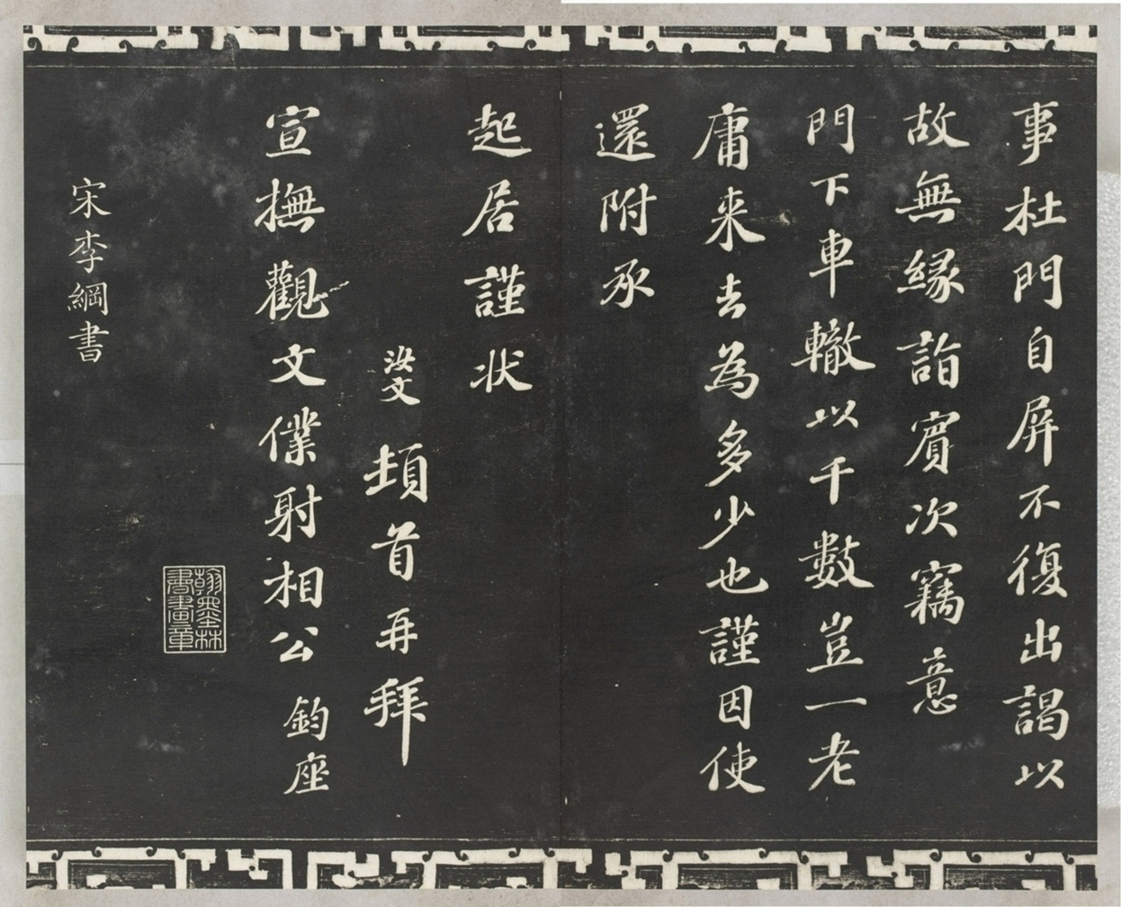 事杜門自屏不復出謁以
故無緣詣賓次竊意
門下車轍以千數豈一老
庸来去為多少也謹因使
還附承
起居謹状
汝文頓首再拜
宣撫觀文僕射相公鈞座
宋李綱書
翰墨林書畫章